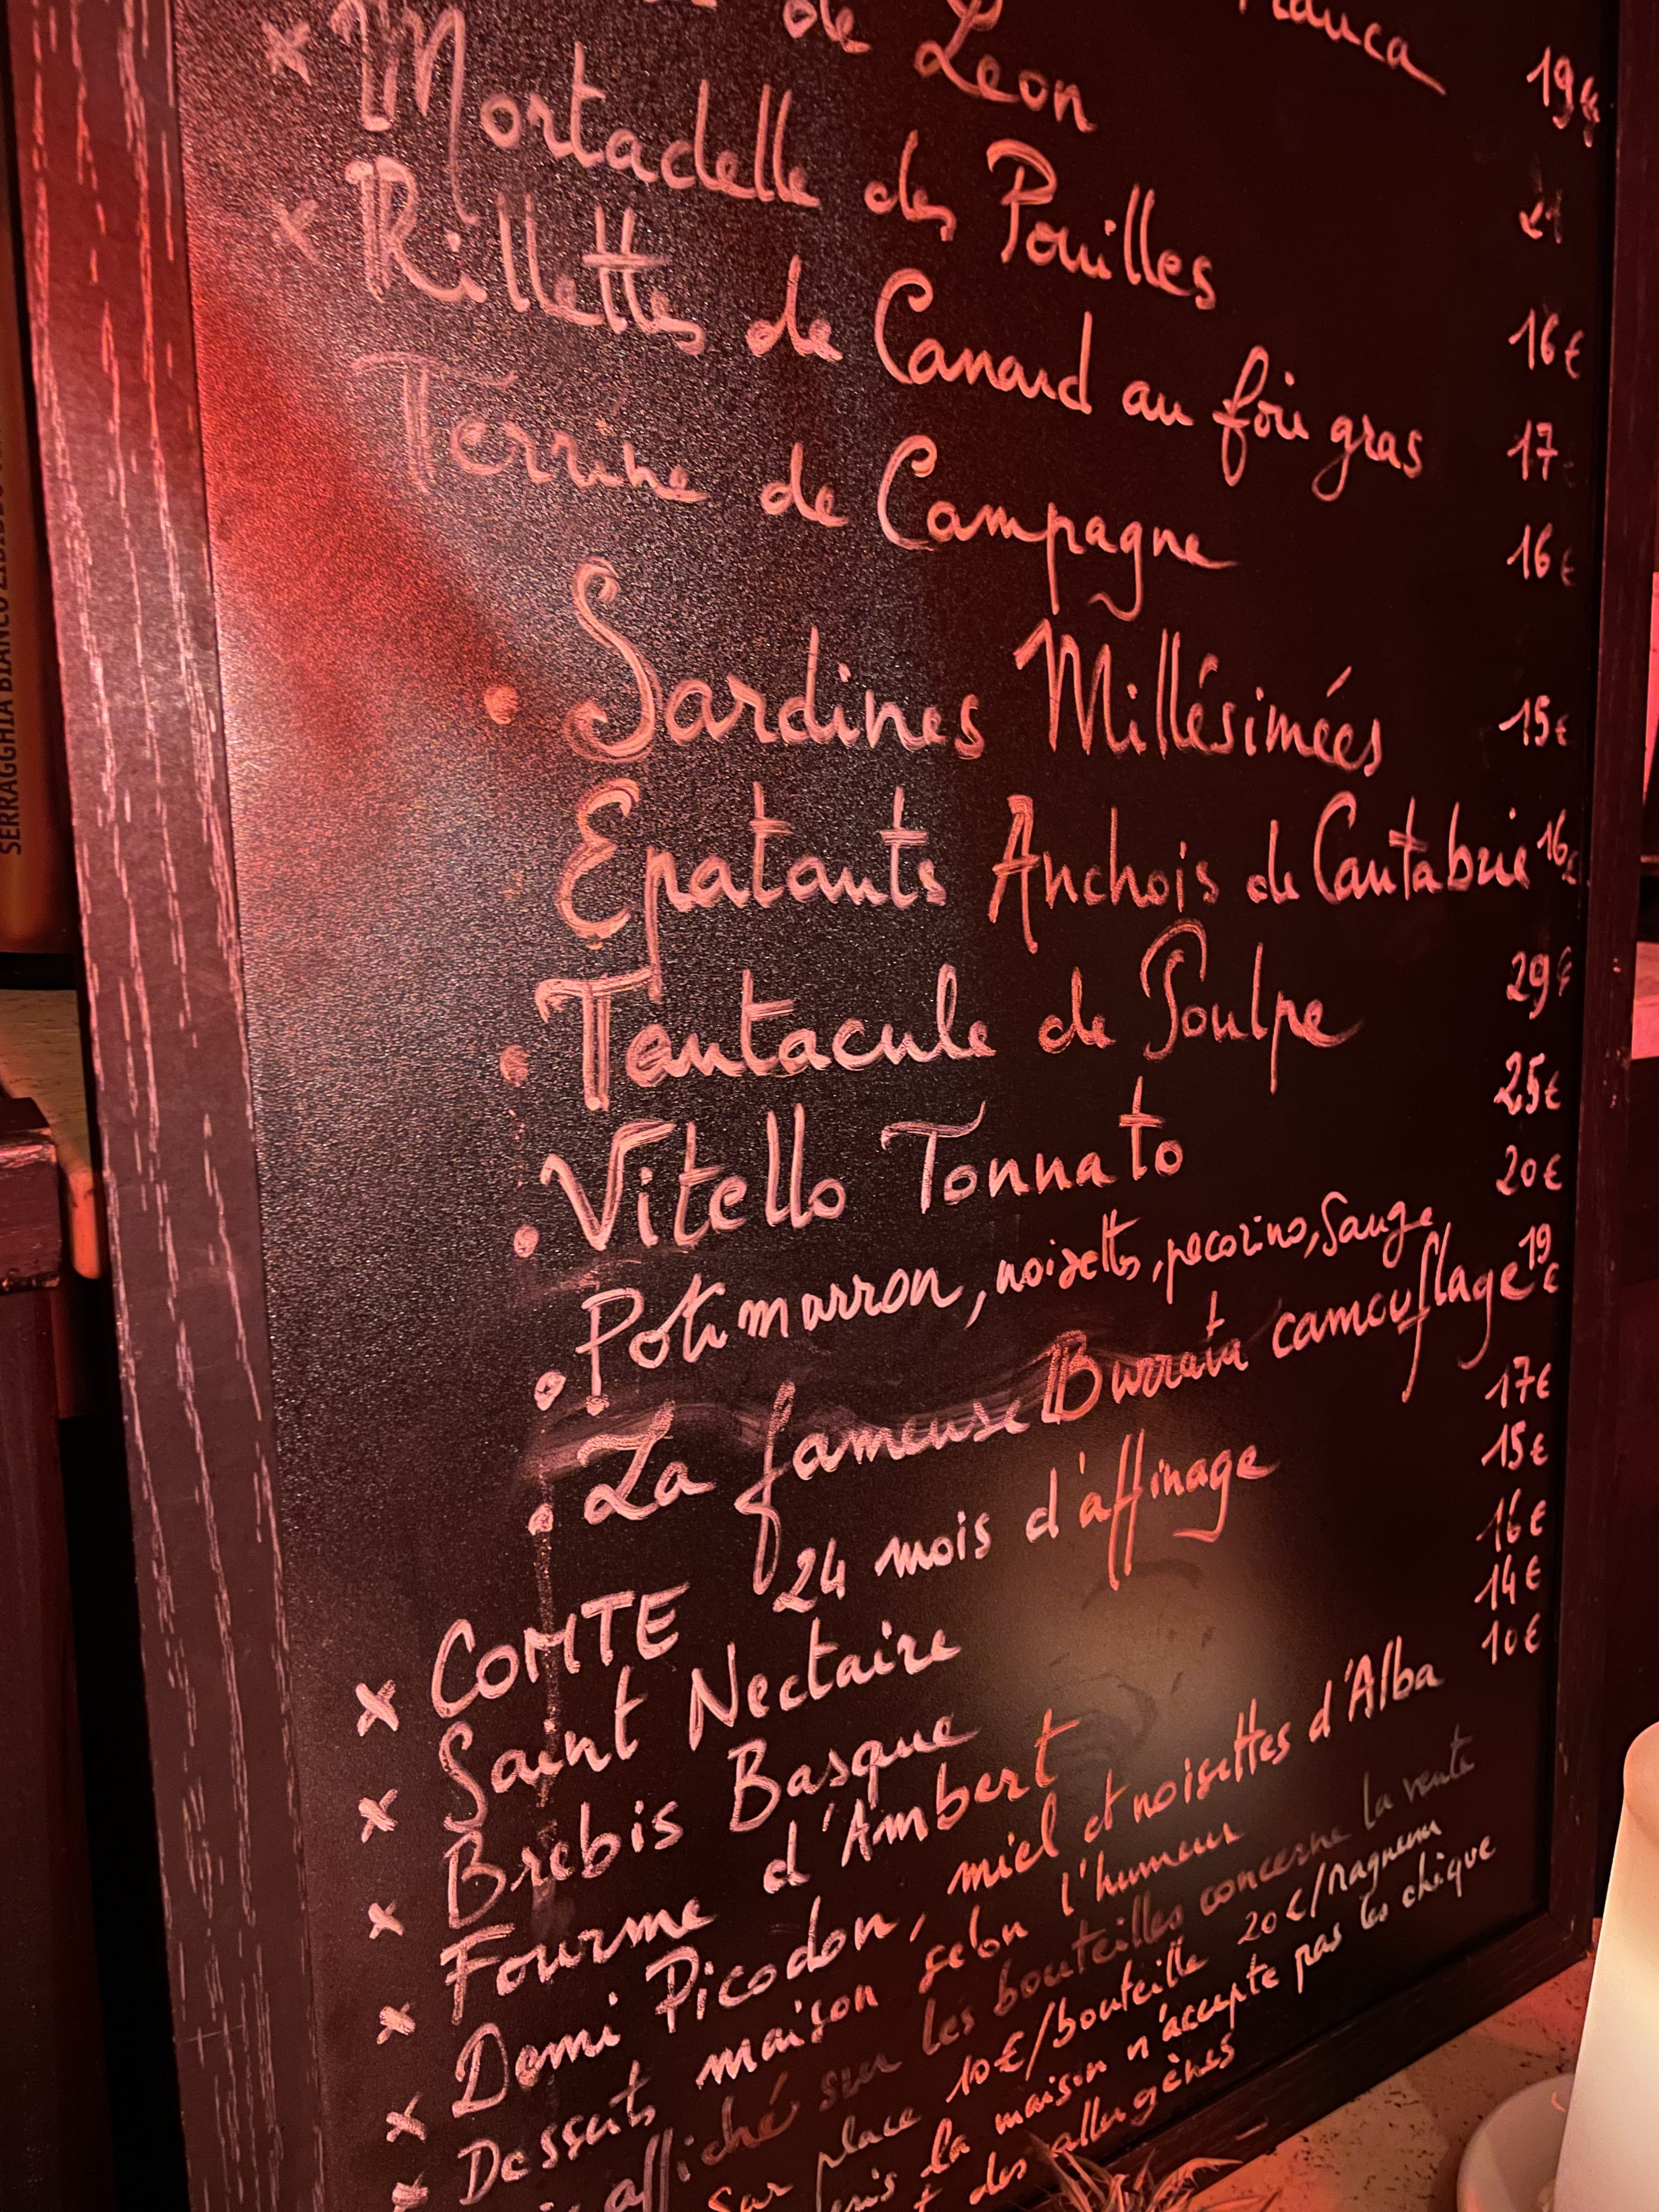 de Leon 19€
× Mortadelle des Pouilles 21
× Rillettes de Canard au foie gras 16€
Terrine de Campagne 17
16€
• Sardines Millésimées 15€
Epatants Anchois de Cantabrie 16€
• Tentacule de Poulpe 29€
• Vitello Tonnato 25€
• Potimarron, noisettes, pecorino, Sauge 20€
• La fameuse Burrata camouflage 19€
× COMTE 24 mois d'affinage 17€
× Saint Nectaire 15€
× Brebis Basque 16€
× Fourme d'Ambert 14€
× Demi Picodon, miel et noisettes d'Alba 10€
× Desserts maison selon l'humeur
affiché sur les bouteilles concerne la vente
sur place 10€/bouteille 20€/magnum
la maison n'accepte pas les chèque
des allergènes
SERRAGGHIA BIANCO